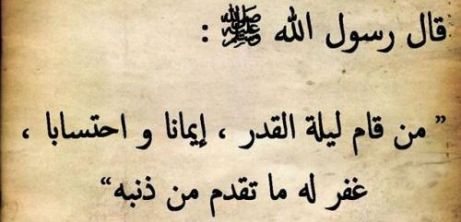 قال رسول الله ﷺ :
” من قام ليلة القدر ، إيمانا و احتسابا ،
غفر له ما تقدم من ذنبه “